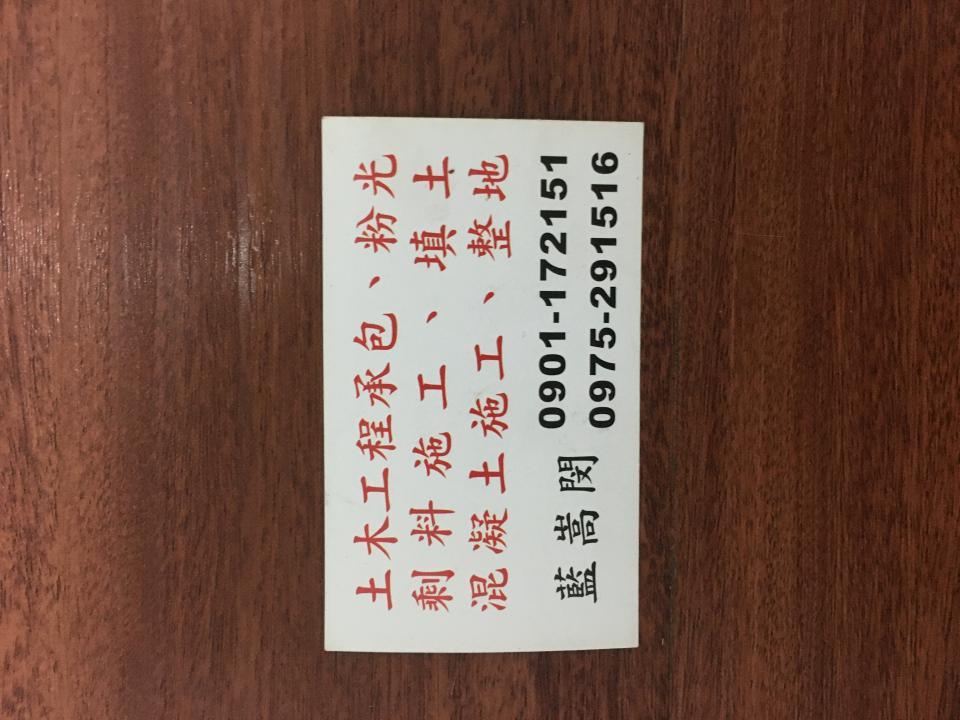 土木工程承包、粉光
剩料施工、填土
混凝土施工、整地
藍嵩閔 0901-172151
0975-291516